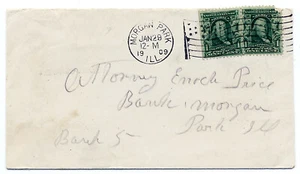 MORGAN PARK
JAN 28
12-M
1909
ILL.
Attorney Enoch Price
Bank, Morgan
Bank 5 Park Ill